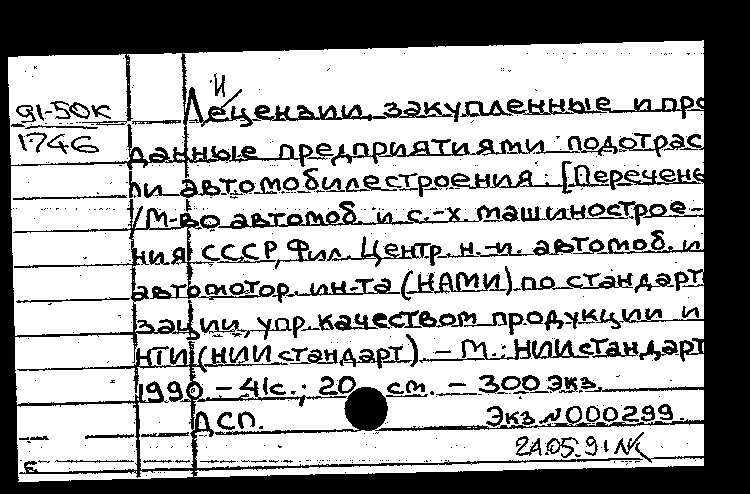 91-50к
1746
и
Лецензии, закупленные и про
данные предприятиями подотрас
ли автомобилестроения: [Перечень
/М-во автомоб. и с.-х. машиностро е-
ния СССР, Фил. Центр. н.-и. автомоб. и
автомотор. ин-та (НАМИ) по стандарт
зации, упр. качеством продукции и
НТИ (НИИстандарт). – М.: НИИстандарт
1990 – 41с.; 20 см. – 300 экз.
ДСП. Экз. №000299.
24.05.91
Е